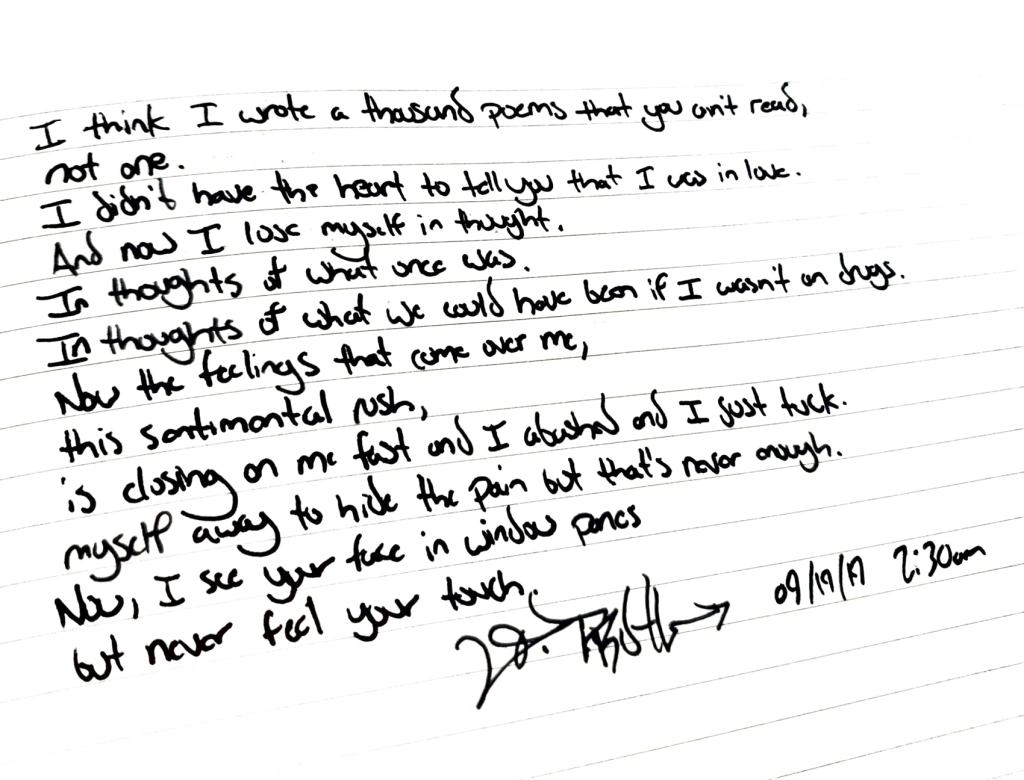 I think I wrote a thousand poems that you ain't read,
not one.
I didn't have the heart to tell you that I was in love.
And now I lose myself in thought.
In thoughts of what once was.
In thoughts of what we could have been if I wasn't on drugs.
Now the feelings that come over me,
this sentimental rush,
is closing on me fast and I and I just tuck.
myself away to hide the pain but that's never enough.
Now, I see your face in window panes
but never feel your touch.
09/19/17 2:30am